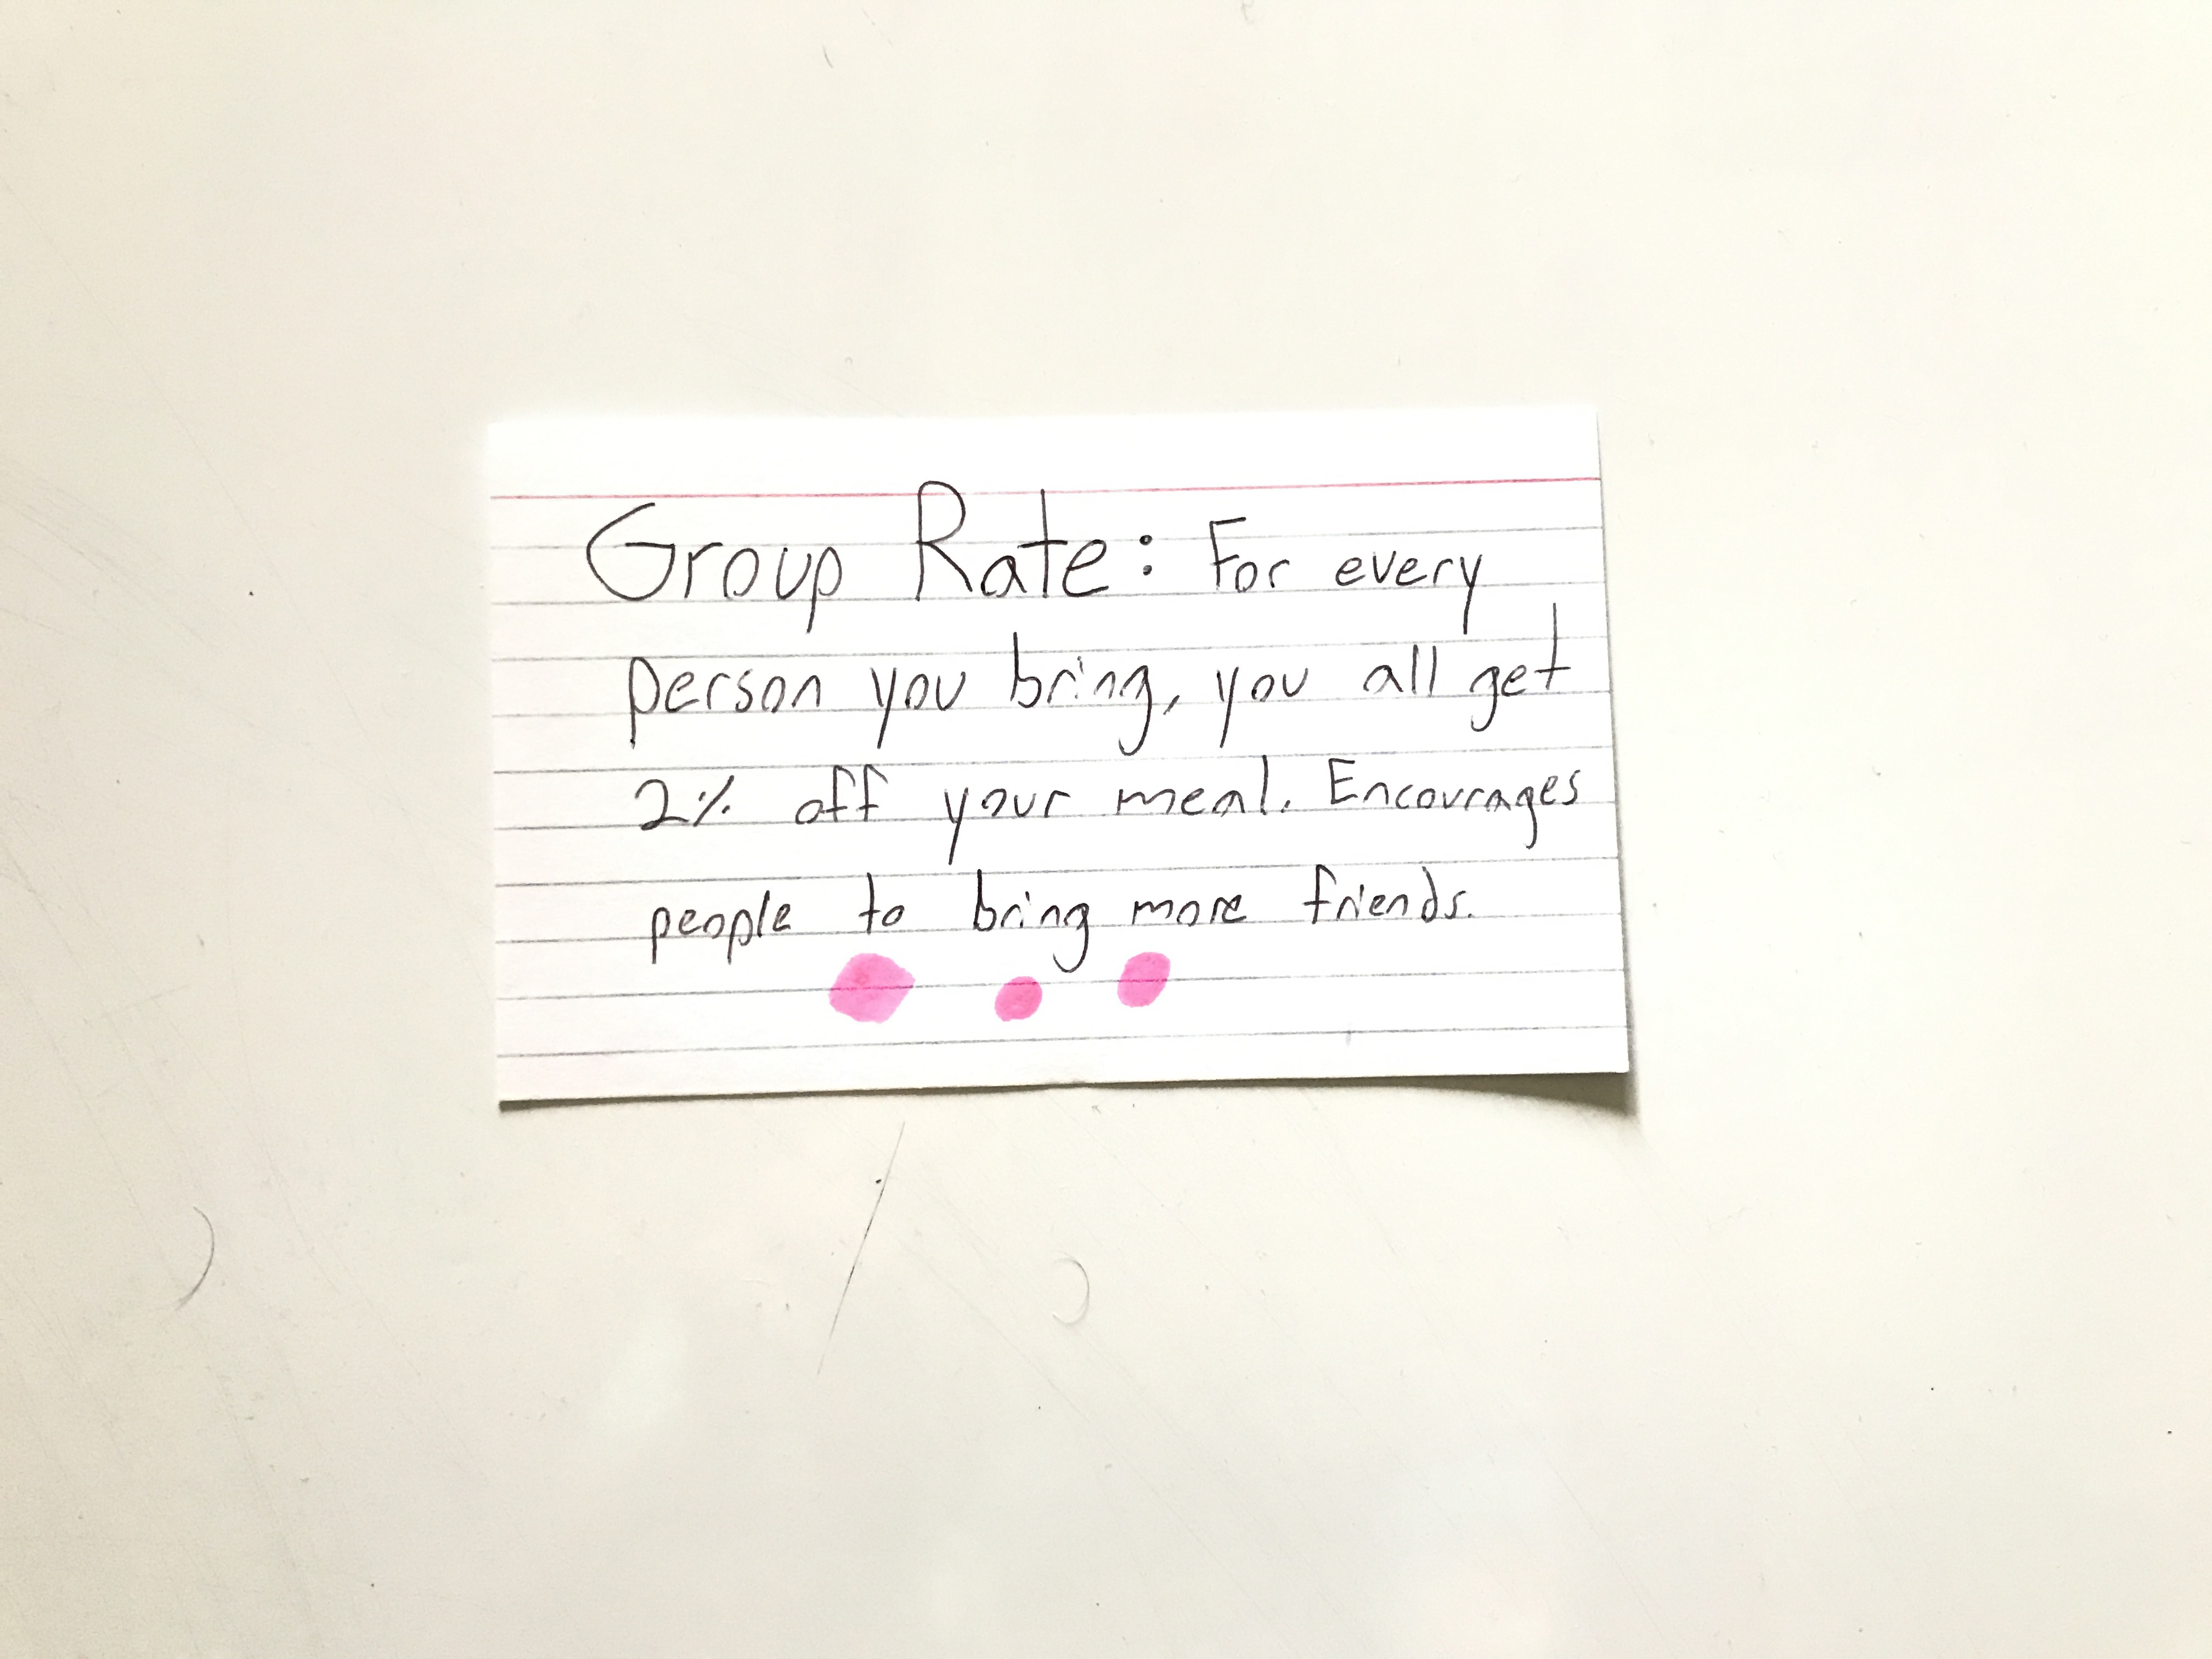 Group Rate: For every
person you bring, you all get
2% off your meal. Encourages
people to bring more friends.